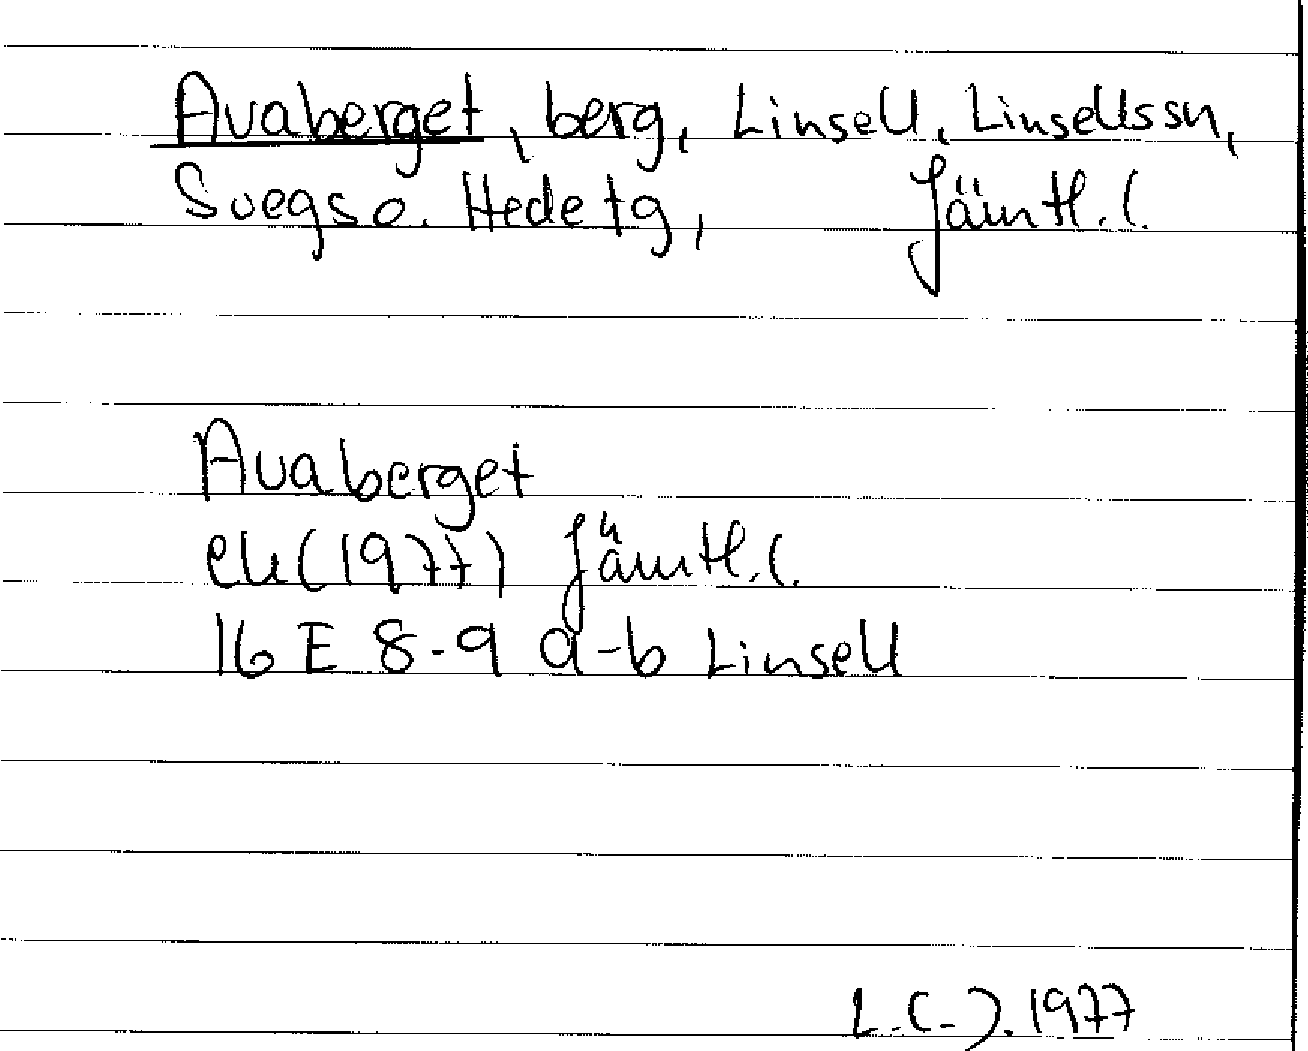 Avaberget, berg, Linsell, Linsells sn,
Svegs o. Hede tg, Jämtl. l.
Avaberget
ek (1977) Jämtl. l.
16 E 8-9 a-b Linsell
L.-C. J. 1977